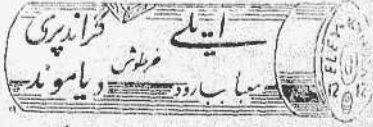 ايلے گراندپری
خرطوش
معبا ببارود دياموند
ELEY
12 12